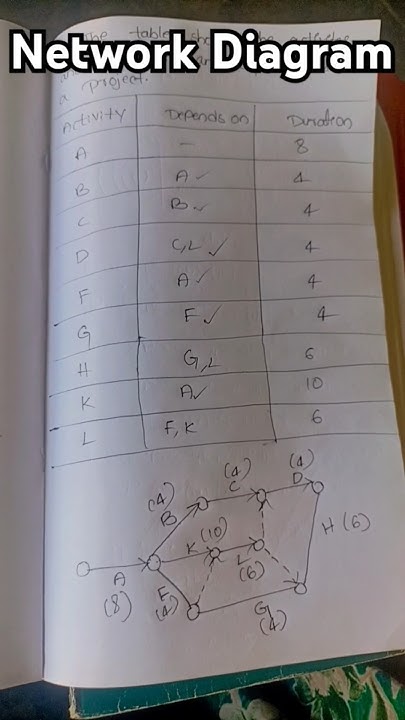 Network Diagram
The table
a project.
Activity Depends on Duration
A - 8
B A ✓ 4
C B ✓ 4
D C,L ✓ 4
F A ✓ 4
G F ✓ 4
H G,L 6
K A✓ 10
L F,K 6
(4) (4) (4)
B C D
K (10) H (6)
A L
(8) F (6)
(4) G
(4)